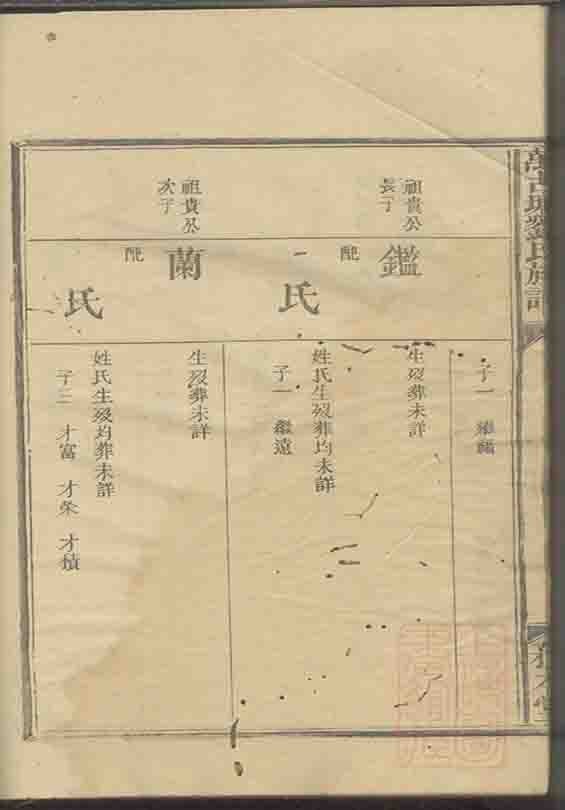 劉氏族譜
子一 繼
祖貴公
長子
鑑
配
氏
生歿葬未詳
姓氏生歿葬均未詳
子一 繼遠
祖貴公
次子
蘭
配
氏
生歿葬未詳
姓氏生歿均葬未詳
子三 才富 才榮 才積